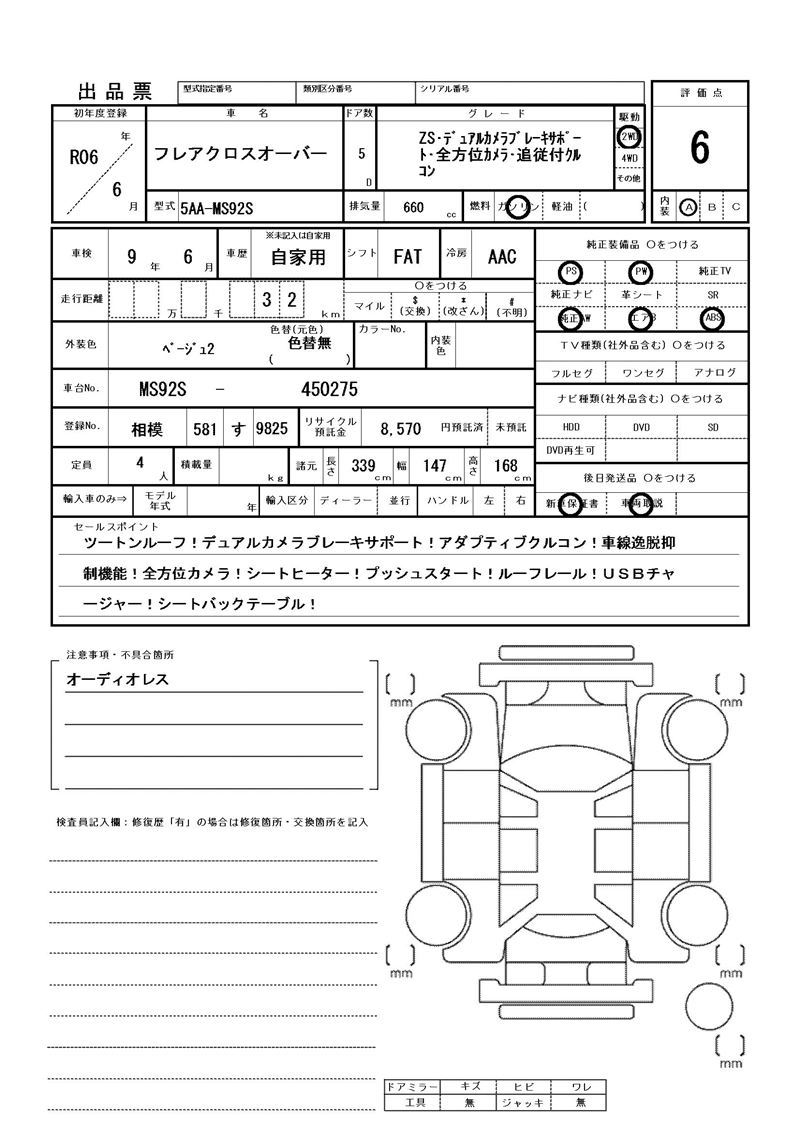 出品票
型式指定番号 類別区分番号 シリアル番号
評価点
6
内装 A B C
初年度登録 車名 ドア数 グレード 駆動
R06 年 6 月
フレアクロスオーバー
5 D
ZS・ﾃﾞｭｱﾙｶﾒﾗﾌﾞﾚｰｷｻﾎﾟｰ
ﾄ・全方位ｶﾒﾗ・追従付ｸﾙ
ｺﾝ
2WD
4WD
その他
型式 5AA-MS92S 排気量 660 cc 燃料 ガソリン 軽油 ( )
車検 9 年 6 月 車歴 ※未記入は自家用 自家用 シフト FAT 冷房 AAC
走行距離 万 千 3 2 km
○をつける
マイル $(交換) *(改ざん) #(不明)
外装色 ﾍﾞｰｼﾞｭ2 色替(元色) 色替無 ( ) カラーNo. 内装色
車台No. MS92S - 450275
登録No. 相模 581 す 9825 リサイクル預託金 8,570 円預託済 未預託
定員 4 人 積載量 kg 諸元 長さ 339 cm 幅 147 cm 高さ 168 cm
輸入車のみ⇒ モデル年式 年 輸入区分 ディーラー 並行 ハンドル 左 右
純正装備品 ○をつける
PS PW 純正TV
純正ナビ 革シート SR
純正AW エアB ABS
TV種類(社外品含む) ○をつける
フルセグ ワンセグ アナログ
ナビ種類(社外品含む) ○をつける
HDD DVD SD
DVD再生可
後日発送品 ○をつける
新車保証書 車両取説
セールスポイント
ツートンルーフ！デュアルカメラブレーキサポート！アダプティブクルコン！車線逸脱抑
制機能！全方位カメラ！シートヒーター！プッシュスタート！ルーフレール！ＵＳＢチャ
ージャー！シートバックテーブル！
注意事項・不具合箇所
オーディオレス
検査員記入欄：修復歴「有」の場合は修復箇所・交換箇所を記入
( ) mm
( ) mm
( ) mm
( ) mm
( ) mm
ドアミラー キズ ヒビ ワレ
工具 無 ジャッキ 無